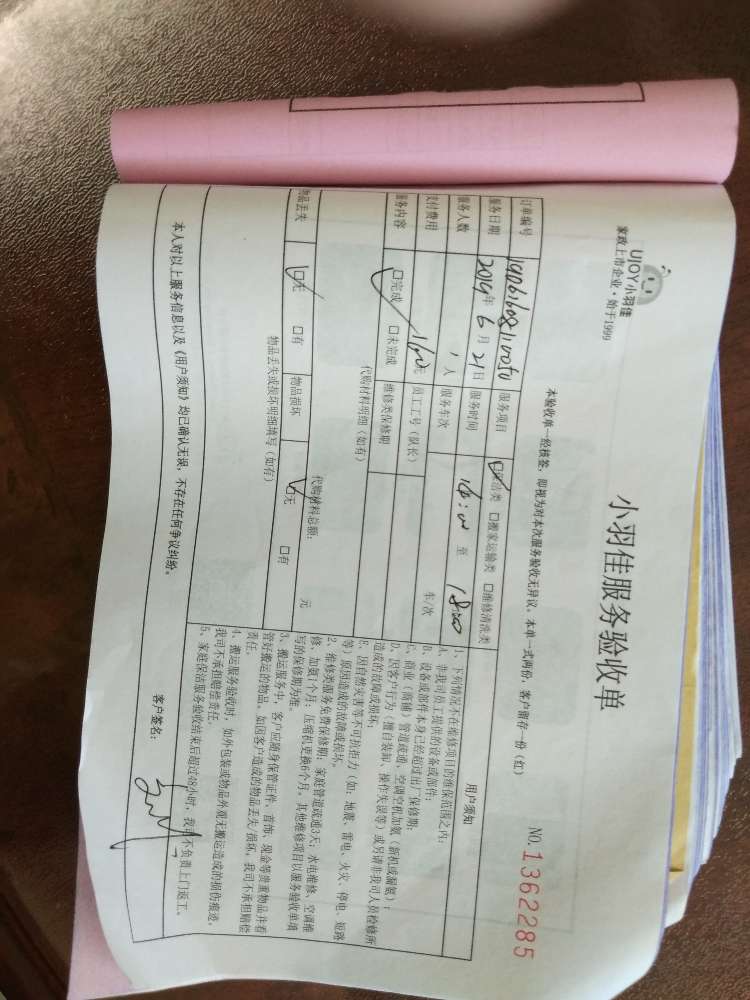 UJOY小羽佳
家政上市企业·始于1999
小羽佳服务验收单
NO.1362285
本验收单一经核签，即视为对本次服务验收无异议。本单一式两份，客户留存一份（红）
订单编号 服务项目 □保洁类 □搬家运输类 □维修清洗类
服务日期 2019年6月21日 服务时间 14:00 至 18:00
服务人数 1人 服务车次 车/次
支付费用 元 员工工号（队长）
服务内容 □完成 □未完成 维修类保修期
代购材料明细（如有）
代购材料总额： 元
物品丢失 □无 □有 物品损坏 □无 □有
物品丢失或损坏明细填写（如有）
用户须知
1、下列情况不在维修项目的维保范围之内：
A、非我司员工提供的设备或部件；
B、设备或部件本身已经超过出厂保修期；
C、商业（商铺）管道疏通，空调空机加氨（新机或漏氨）；
D、因客户行为（擅自装卸、操作失误等）或另请非我司人员检修所
造成的故障或损坏；
E、因自然灾害等不可抗拒力（如：地震、雷电、火灾、停电、短路
等）原因造成的故障或损坏。
2、维修类服务免费保修期：家庭管道疏通3天，水电维修、空调维
修、加氨1个月；压缩机更换6个月，其他维修项目以服务验收单填
写的保修期为准。
3、搬运服务中，客户应随身保管证件、首饰、现金等贵重物品并看
管好搬运的物品。如因客户造成的物品丢失/损坏，我司不承担赔偿
责任。
4、搬运服务验收时，如外包装或物品外观无搬运造成的损伤痕迹，
我司不承担赔偿责任。
5、家庭保洁服务验收结束后超过48小时，我司不负责上门返工。
本人对以上服务信息以及《用户须知》均已确认无误，不存在任何争议纠纷。
客户签名：